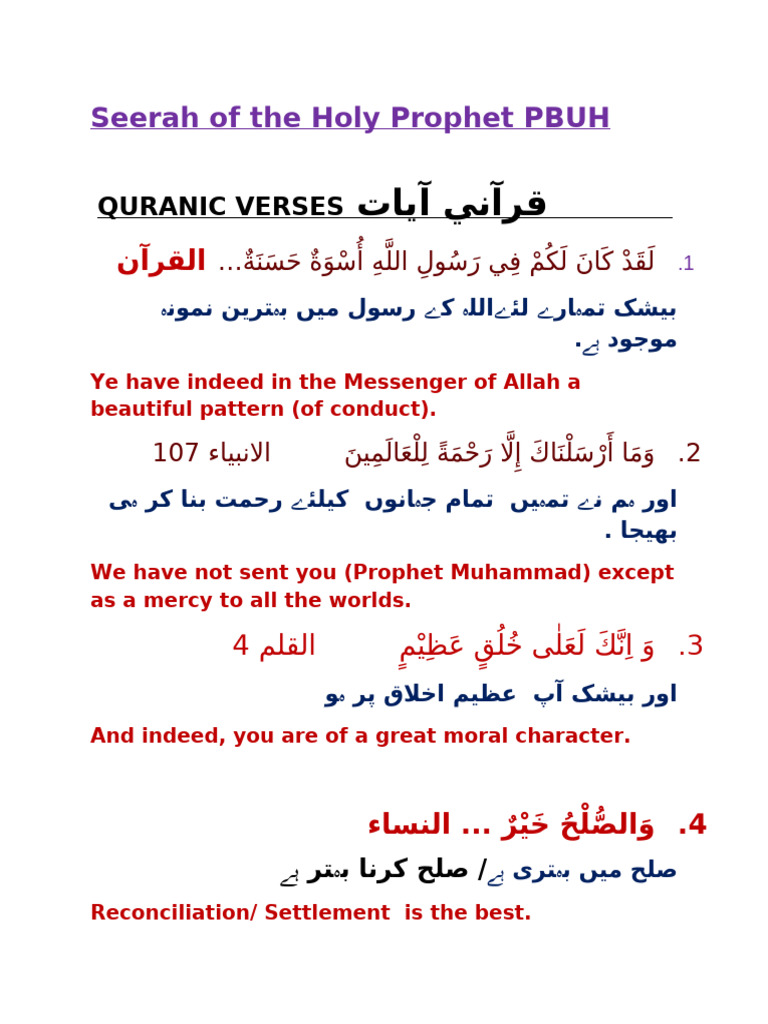 Seerah of the Holy Prophet PBUH
QURANIC VERSES قرآني آيات
1. لَقَدْ كَانَ لَكُمْ فِي رَسُولِ اللَّهِ أُسْوَةٌ حَسَنَةٌ... القرآن
بیشک تمہارے لئےاللہ کے رسول میں بہترین نمونہ
موجود ہے.
Ye have indeed in the Messenger of Allah a
beautiful pattern (of conduct).
2. وَمَا أَرْسَلْنَاكَ إِلَّا رَحْمَةً لِلْعَالَمِينَ الانبیاء 107
اور ہم نے تمہیں تمام جہانوں کیلئے رحمت بنا کر ہی
بھیجا .
We have not sent you (Prophet Muhammad) except
as a mercy to all the worlds.
3. وَ اِنَّكَ لَعَلٰى خُلُقٍ عَظِیْمٍ القلم 4
اور بیشک آپ عظیم اخلاق پر ہو
And indeed, you are of a great moral character.
4. وَالصُّلْحُ خَيْرٌ ... النساء
صلح میں بہتری ہے/ صلح کرنا بہتر ہے
Reconciliation/ Settlement is the best.